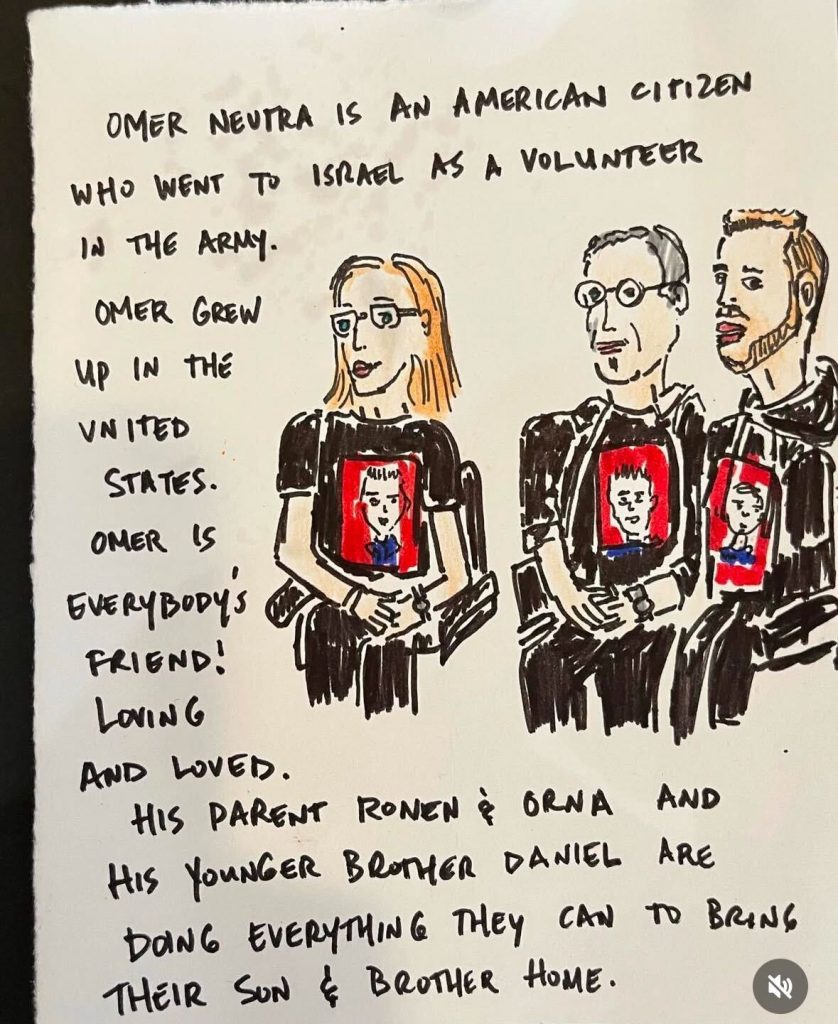 OMER NEUTRA IS AN AMERICAN CITIZEN
WHO WENT TO ISRAEL AS A VOLUNTEER
IN THE ARMY.
OMER GREW
UP IN THE
UNITED
STATES.
OMER IS
EVERYBODY'S
FRIEND!
LOVING
AND LOVED.
HIS PARENT RONEN & ORNA AND
HIS YOUNGER BROTHER DANIEL ARE
DOING EVERYTHING THEY CAN TO BRING
THEIR SON & BROTHER HOME.